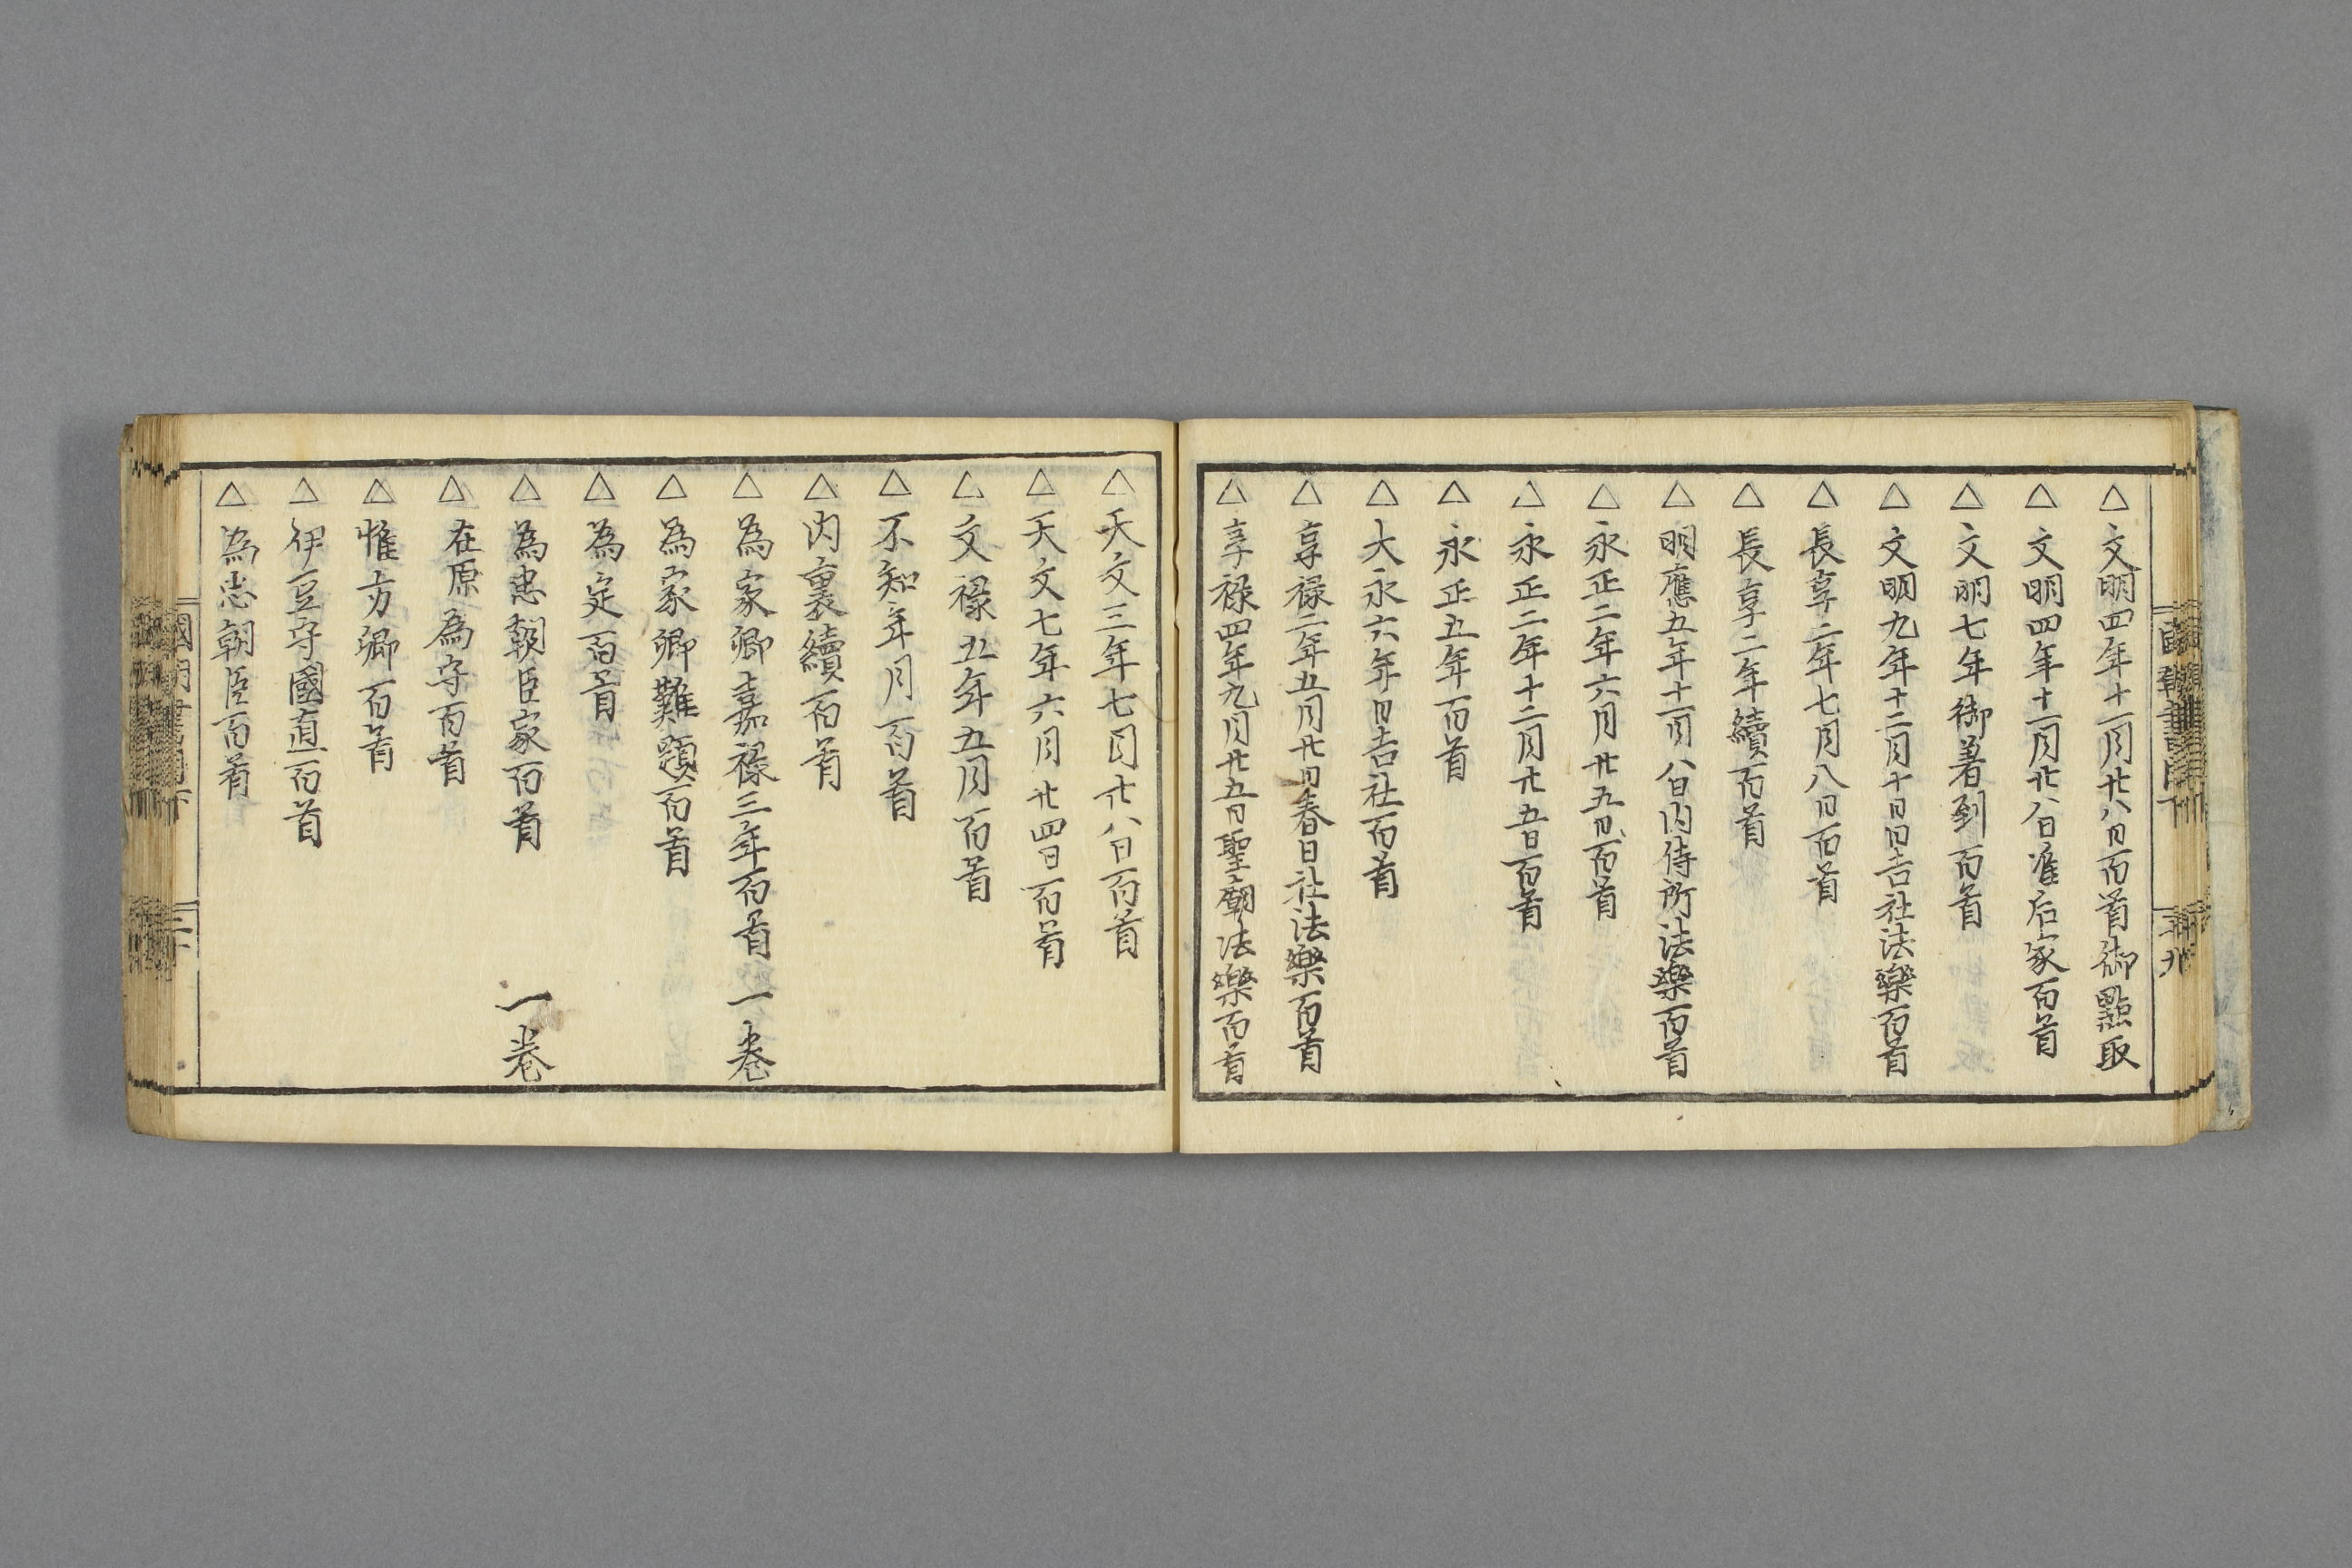 △文明四年十一月廿八日百首御點取
△文明四年十一月廿八日准后家百首
△文明七年御着到百首
△文明九年十二月十日日吉社法樂百首
△長享二年七月八日百首
△長享二年續百首
△明應五年十一月八日内侍所法樂百首
△永正二年六月廿五日百首
△永正二年十二月廿五日百首
△永正五年百首
△大永六年日吉社百首
△享禄二年五月廿日春日社法樂百首
△享禄四年九月廿五日聖廟法樂百首
△天文三年七月廿八日百首
△天文七年六月廿四日百首
△文禄五年五月百首
△不知年月百首
△内裏續百首
△為家卿嘉禄三年百首 一巻
△為家卿難題百首
△為定百首
△為忠朝臣家百首 一巻
△在原為守百首
△惟方卿百首
△伊豆守國直百首
△為忠朝臣百首